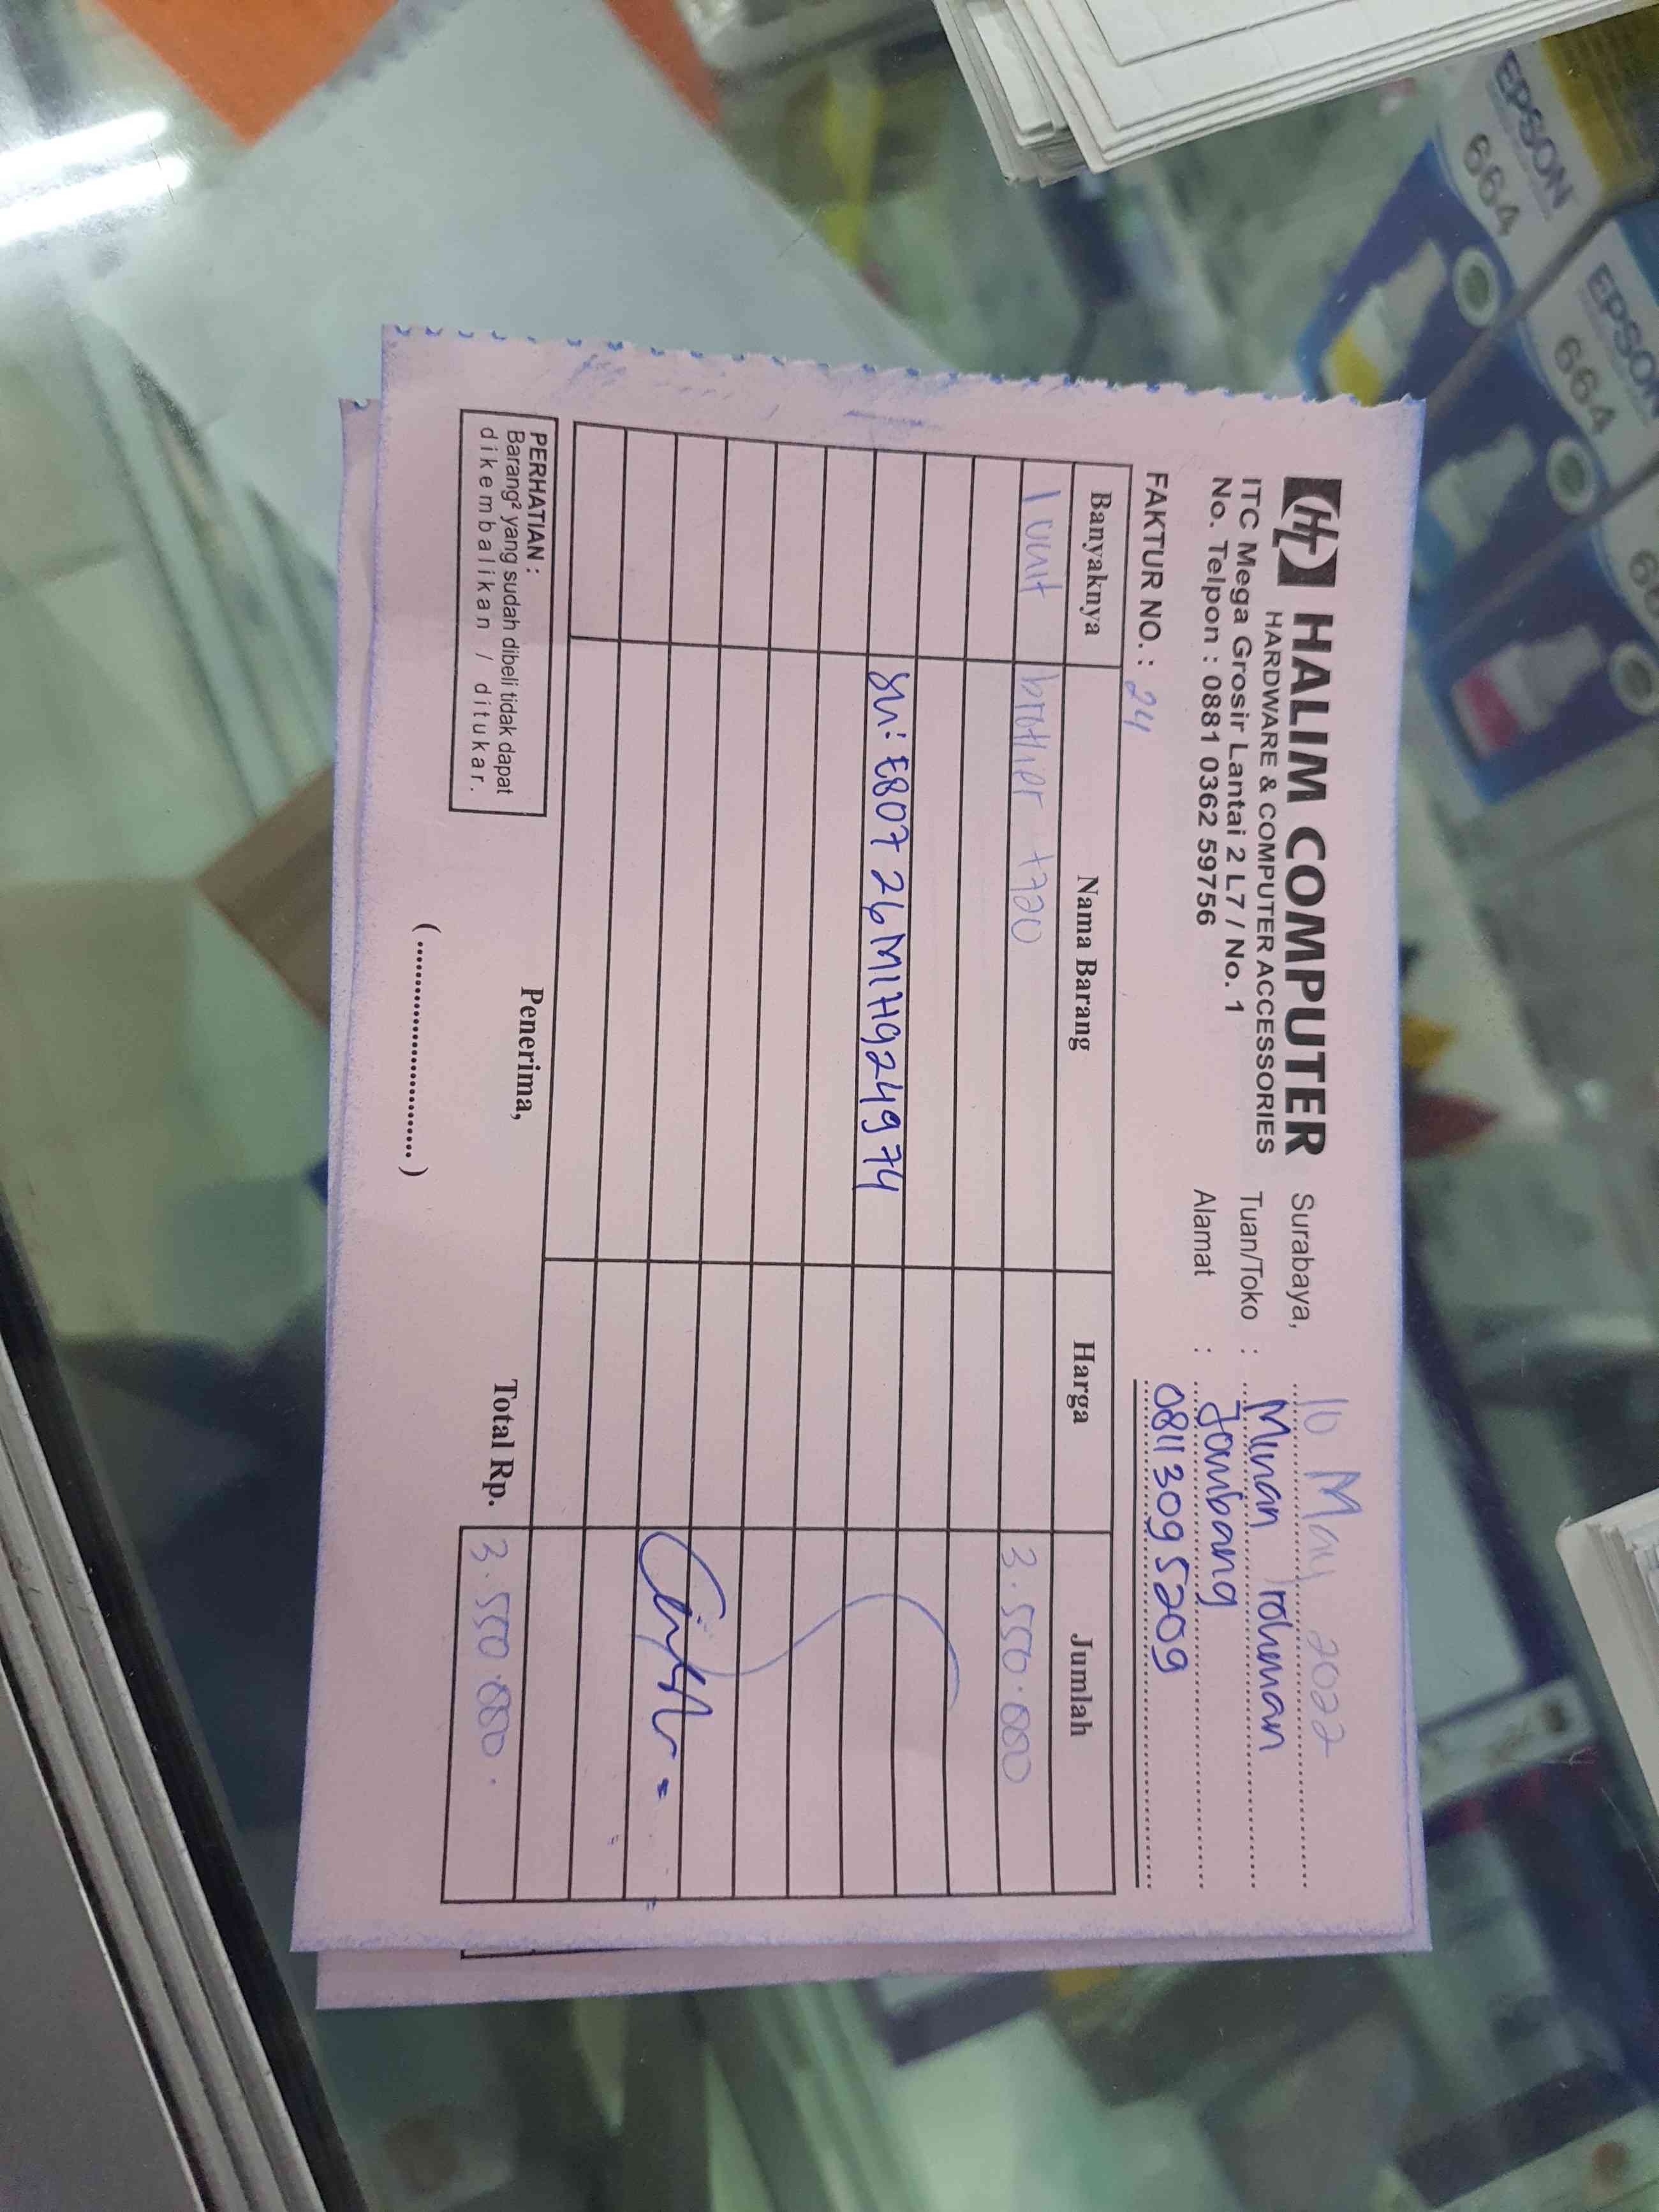 HALIM COMPUTER
HARDWARE & COMPUTER ACCESSORIES
ITC Mega Grosir Lantai 2 L7 / No. 1
No. Telpon : 0881 0362 59756
Surabaya, 10 May 2022
Tuan/Toko : Minan rohman
Alamat : Jombang
0811 309 5209
FAKTUR NO. : 24
Banyaknya Nama Barang Harga Jumlah
1 unit brother t720 3.550.000
SN: E80726M1H924974
Total Rp. 3.550.000.
PERHATIAN :
Barang² yang sudah dibeli tidak dapat
dikembalikan / ditukar.
Penerima,
(........................)
EPSON
664
EPSON
664